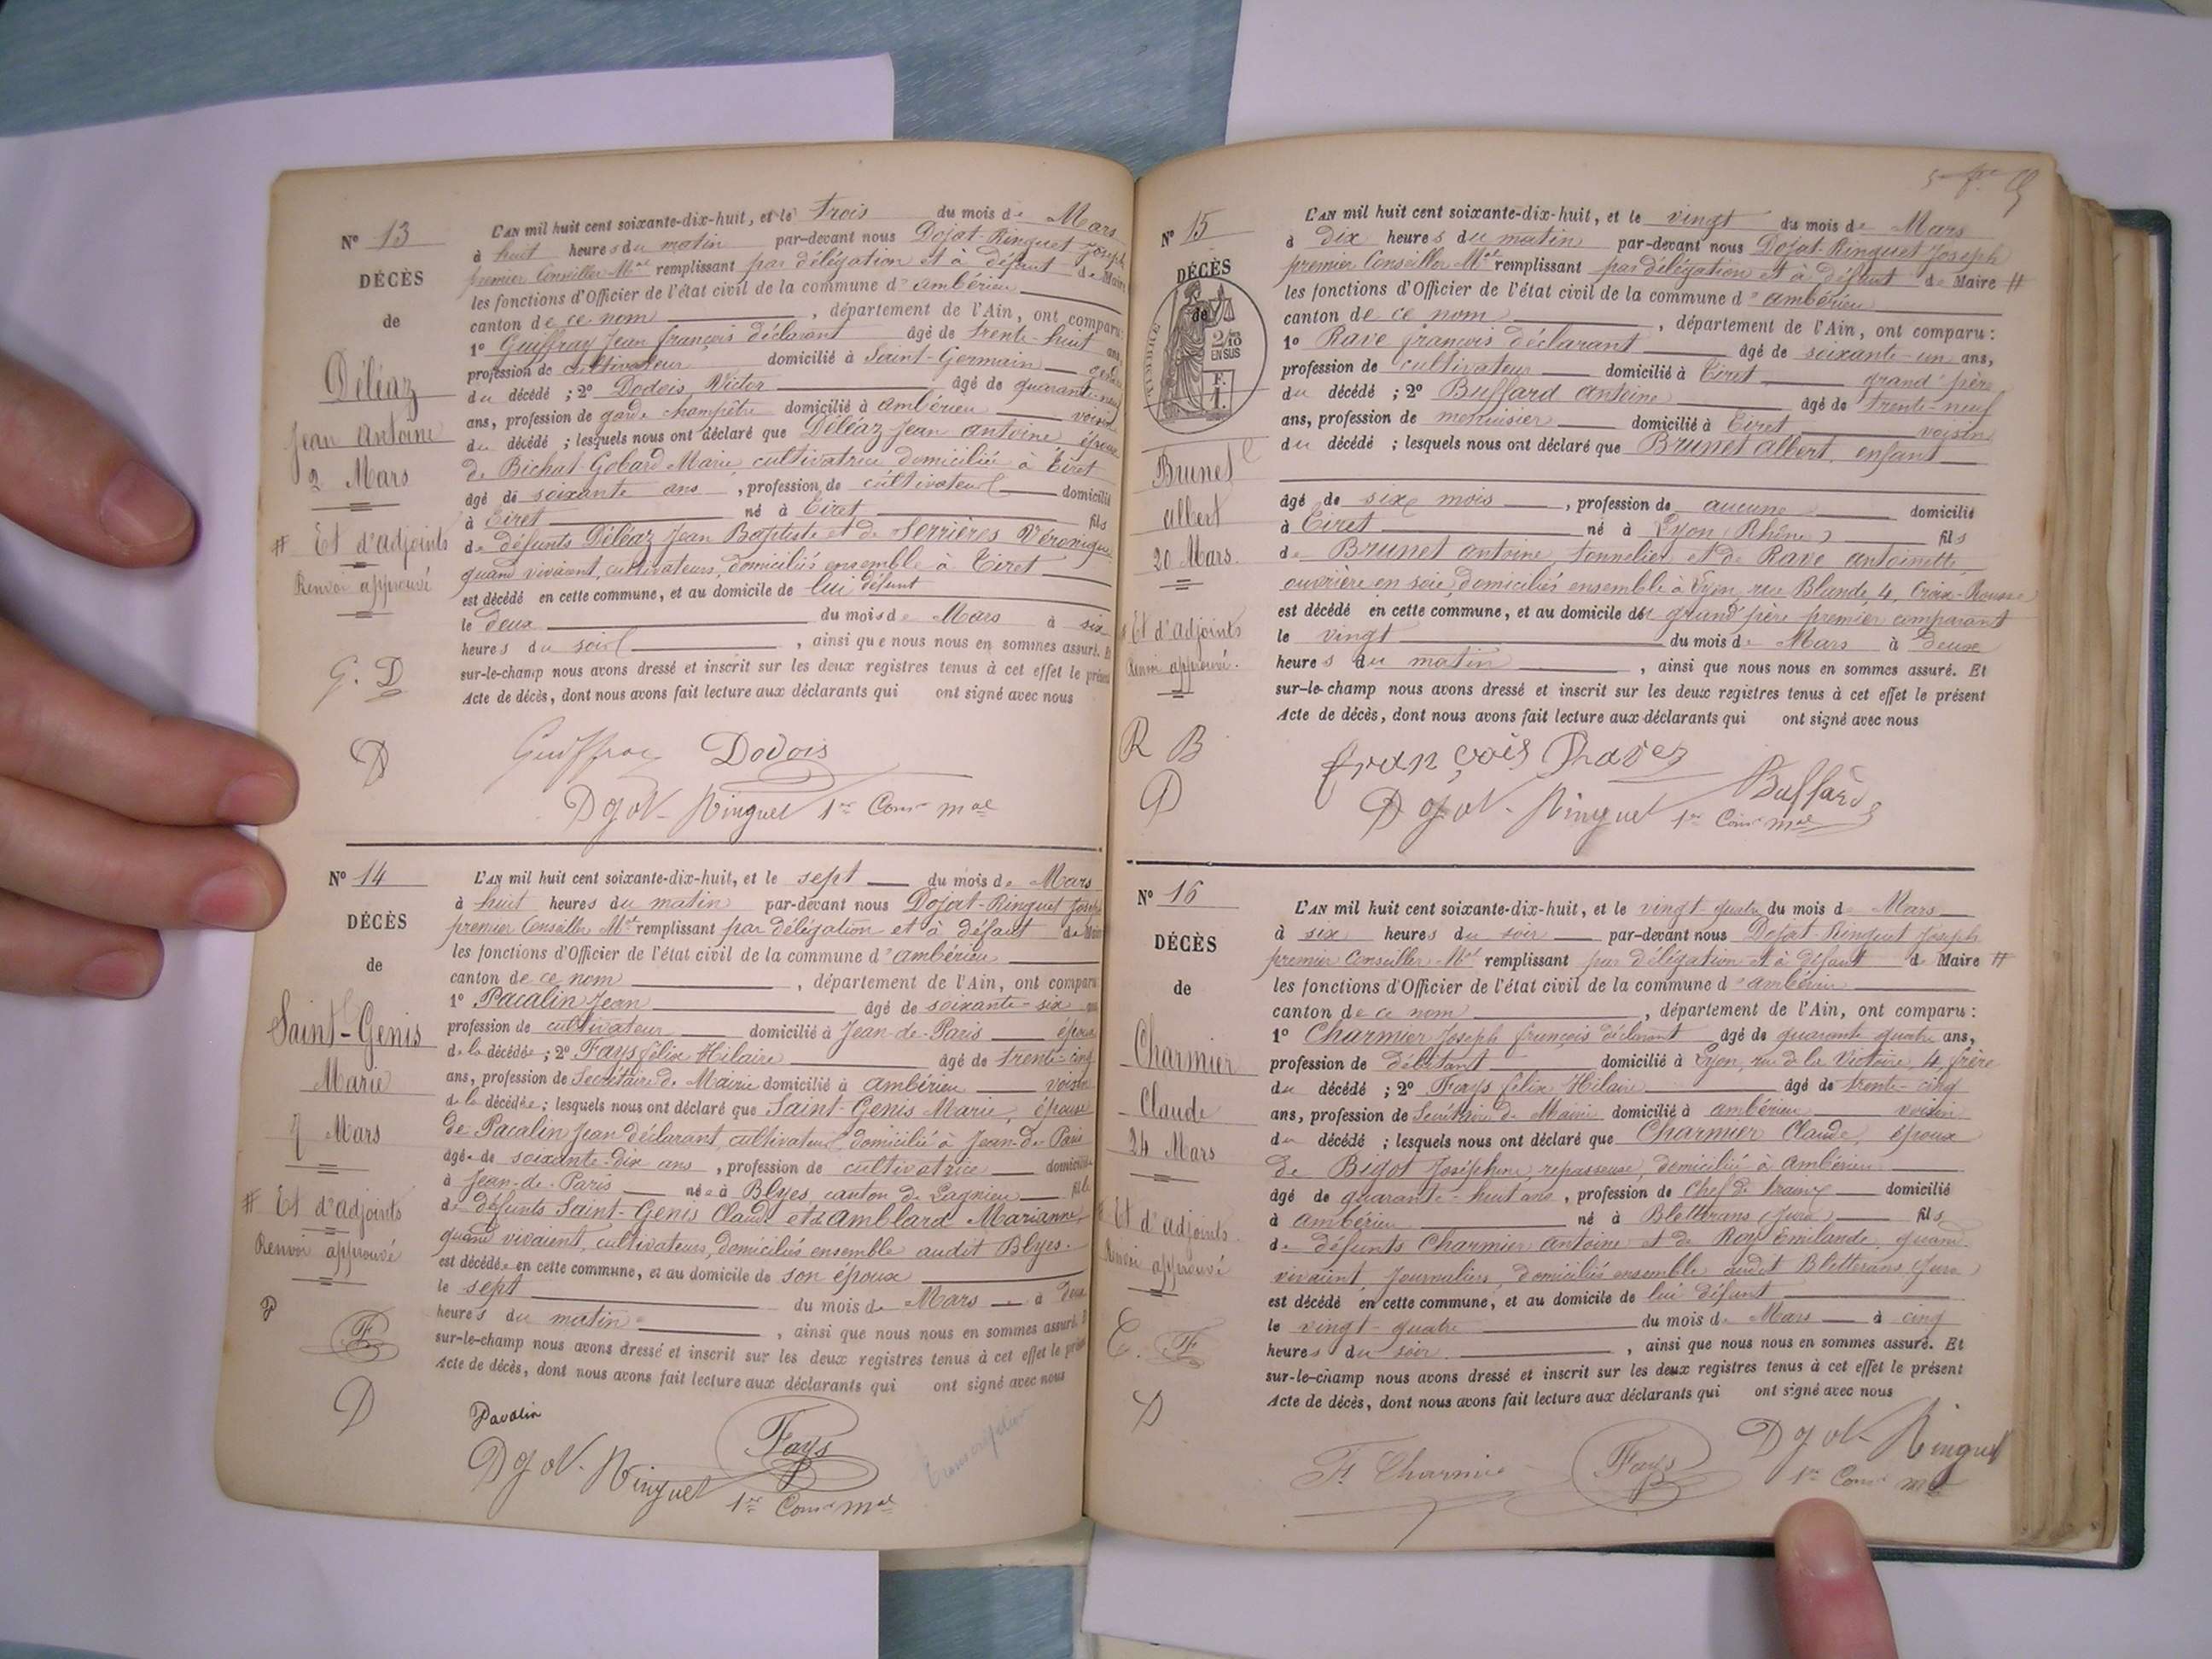 N° 13
DÉCÈS
de
Déléaz
Jean Antoine
2 Mars
# Et d'adjoints
Renvoi approuvé
G. D
D
L'AN mil huit cent soixante-dix-huit, et le trois du mois de Mars
à huit heures du matin par-devant nous Dojat-Ringuet Joseph
premier Conseiller Mal remplissant par délégation et à défaut de Maire
les fonctions d'Officier de l'état civil de la commune d'Ambérieu
canton de ce nom, département de l'Ain, ont comparu:
1° Guiffray Jean françois déclarant âgé de trente-huit ans,
profession de cultivateur domicilié à Saint-Germain gendre
du décédé ; 2° Dodois Victor âgé de quarante-neuf
ans, profession de garde champêtre domicilié à Ambérieu voisin
du décédé ; lesquels nous ont déclaré que Déléaz Jean Antoine époux
de Bichat-Gobard Marie, cultivatrice domiciliée à Tiret
âgé de soixante ans, profession de cultivateur domicilié
à Tiret né à Tiret fils
de défunts Déléaz Jean Baptiste et de Serrières Véronique
quand vivaient, cultivateurs, domiciliés ensemble à Tiret
est décédé en cette commune, et au domicile de lui défunt
le deux du mois de Mars à six
heures du soir, ainsi que nous nous en sommes assuré. Et
sur-le-champ nous avons dressé et inscrit sur les deux registres tenus à cet effet le présent
Acte de décès, dont nous avons fait lecture aux déclarants qui ont signé avec nous
Guiffray Dodois
Dojat-Ringuet 1er Conser mal
N° 14
DÉCÈS
de
Saint-Genis
Marie
7 Mars
# Et d'adjoints
Renvoi approuvé
P
F
D
L'AN mil huit cent soixante-dix-huit, et le sept du mois de Mars
à huit heures du matin par-devant nous Dojat-Ringuet Joseph
premier Conseiller Mal remplissant par délégation et à défaut de Maire
les fonctions d'Officier de l'état civil de la commune d'Ambérieu
canton de ce nom, département de l'Ain, ont comparu
1° Pacalin Jean âgé de soixante-six ans
profession de cultivateur domicilié à Jean-de-Paris époux
de la décédée ; 2° Fays félix Hilaire âgé de trente-cinq
ans, profession de Secrétaire de Mairie domicilié à Ambérieu voisin
de la décédée ; lesquels nous ont déclaré que Saint-Genis Marie, épouse
de Pacalin Jean déclarant, cultivateur, domicilié à Jean-de-Paris
âgée de soixante-dix ans, profession de cultivatrice domiciliée
à Jean-de-Paris née à Blyes, canton de Lagnieu fille
de défunts Saint-Genis Claude et de Amblard Marianne
quand vivaient, cultivateurs, domiciliés ensemble audit Blyes.
est décédée en cette commune, et au domicile de son époux
le sept du mois de Mars à deux
heures du matin, ainsi que nous nous en sommes assuré. Et
sur-le-champ nous avons dressé et inscrit sur les deux registres tenus à cet effet le présent
Acte de décès, dont nous avons fait lecture aux déclarants qui ont signé avec nous
Pacalin Fays
Dojat-Ringuet 1er Conser mal
Transcription
N° 15
DÉCÈS
de
TIMBRE
2/10 EN SUS
F. 1.
Brunet
Albert
20 Mars.
# Et d'adjoints
Renvoi approuvé.
R B
D
L'AN mil huit cent soixante-dix-huit, et le vingt du mois de Mars
à dix heures du matin par-devant nous Dojat-Ringuet Joseph
premier Conseiller Mal remplissant par délégation et à défaut de Maire #
les fonctions d'Officier de l'état civil de la commune d'Ambérieu
canton de ce nom, département de l'Ain, ont comparu :
1° Rave françois déclarant âgé de soixante-un ans,
profession de cultivateur domicilié à Tiret grand'père
du décédé ; 2° Buffard Antoine âgé de trente-neuf
ans, profession de menuisier domicilié à Tiret voisin
du décédé ; lesquels nous ont déclaré que Brunet Albert, enfant
âgé de six mois, profession de aucune domicilié
à Tiret né à Lyon (Rhône) fils
de Brunet Antoine, tonnelier et de Rave Antoinette
ouvrière en soie, domiciliés ensemble à Lyon, rue Blande 4, Croix-Rousse
est décédé en cette commune, et au domicile de grand'père premier comparant
le vingt du mois de Mars à deux
heures du matin, ainsi que nous nous en sommes assuré. Et
sur-le-champ nous avons dressé et inscrit sur les deux registres tenus à cet effet le présent
Acte de décès, dont nous avons fait lecture aux déclarants qui ont signé avec nous
françois Ravez
Buffard
Dojat-Ringuet 1er Conser mal
N° 16
DÉCÈS
de
Charmier
Claude
24 Mars
# Et d'adjoints.
Renvoi approuvé
C. F
D
L'AN mil huit cent soixante-dix-huit, et le vingt-quatre du mois de Mars
à six heures du soir par-devant nous Dojat-Ringuet Joseph
premier Conseiller Mal remplissant par délégation et à défaut de Maire #
les fonctions d'Officier de l'état civil de la commune d'Ambérieu
canton de ce nom, département de l'Ain, ont comparu :
1° Charmier Joseph françois déclarant âgé de quarante quatre ans,
profession de débitant domicilié à Lyon, rue de la Victoire, 4, frère
du décédé ; 2° Fays félix Hilaire âgé de trente-cinq
ans, profession de Secrétaire de Mairie domicilié à Ambérieu voisin
du décédé ; lesquels nous ont déclaré que Charmier Claude, époux
de Bigot Joséphine, repasseuse, domiciliée à Ambérieu
âgé de quarante-huit ans, profession de Chef de train domicilié
à Ambérieu né à Bletterans (Jura) fils
de défunts Charmier Antoine et de Roy Emilande, quand
vivaient, Journaliers, domiciliés ensemble audit Bletterans (Jura)
est décédé en cette commune, et au domicile de lui défunt
le vingt-quatre du mois de Mars à cinq
heures du soir, ainsi que nous nous en sommes assuré. Et
sur-le-champ nous avons dressé et inscrit sur les deux registres tenus à cet effet le présent
Acte de décès, dont nous avons fait lecture aux déclarants qui ont signé avec nous
F. Charmier Fays Dojat-Ringuet
1er Conser mal